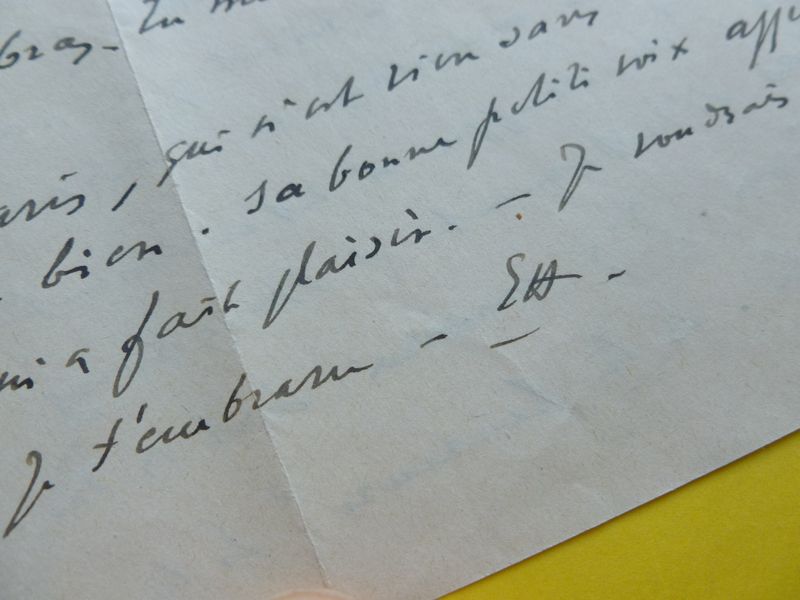 bras - Tu m
aris, qui n'est rien sans
bien. Sa bonne petite voix app
m'a fait plaisir. - Je voudrais
Je t'embrasse - EH -